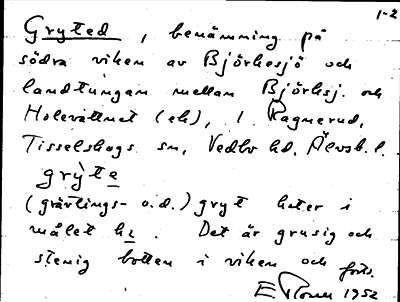 1-2
Gryted, benämning på
södra viken av Björkesjö och
landtungan mellan Björksj. och
Holevattnet (ek), 1 Ragnerud,
Tisselskogs sn, Vedbo hd, Älvsb. l.
gryte
(grävlings- o.d.) gryt heter i
målet
Det är grusig och
stenig botten i viken och forts.
1952